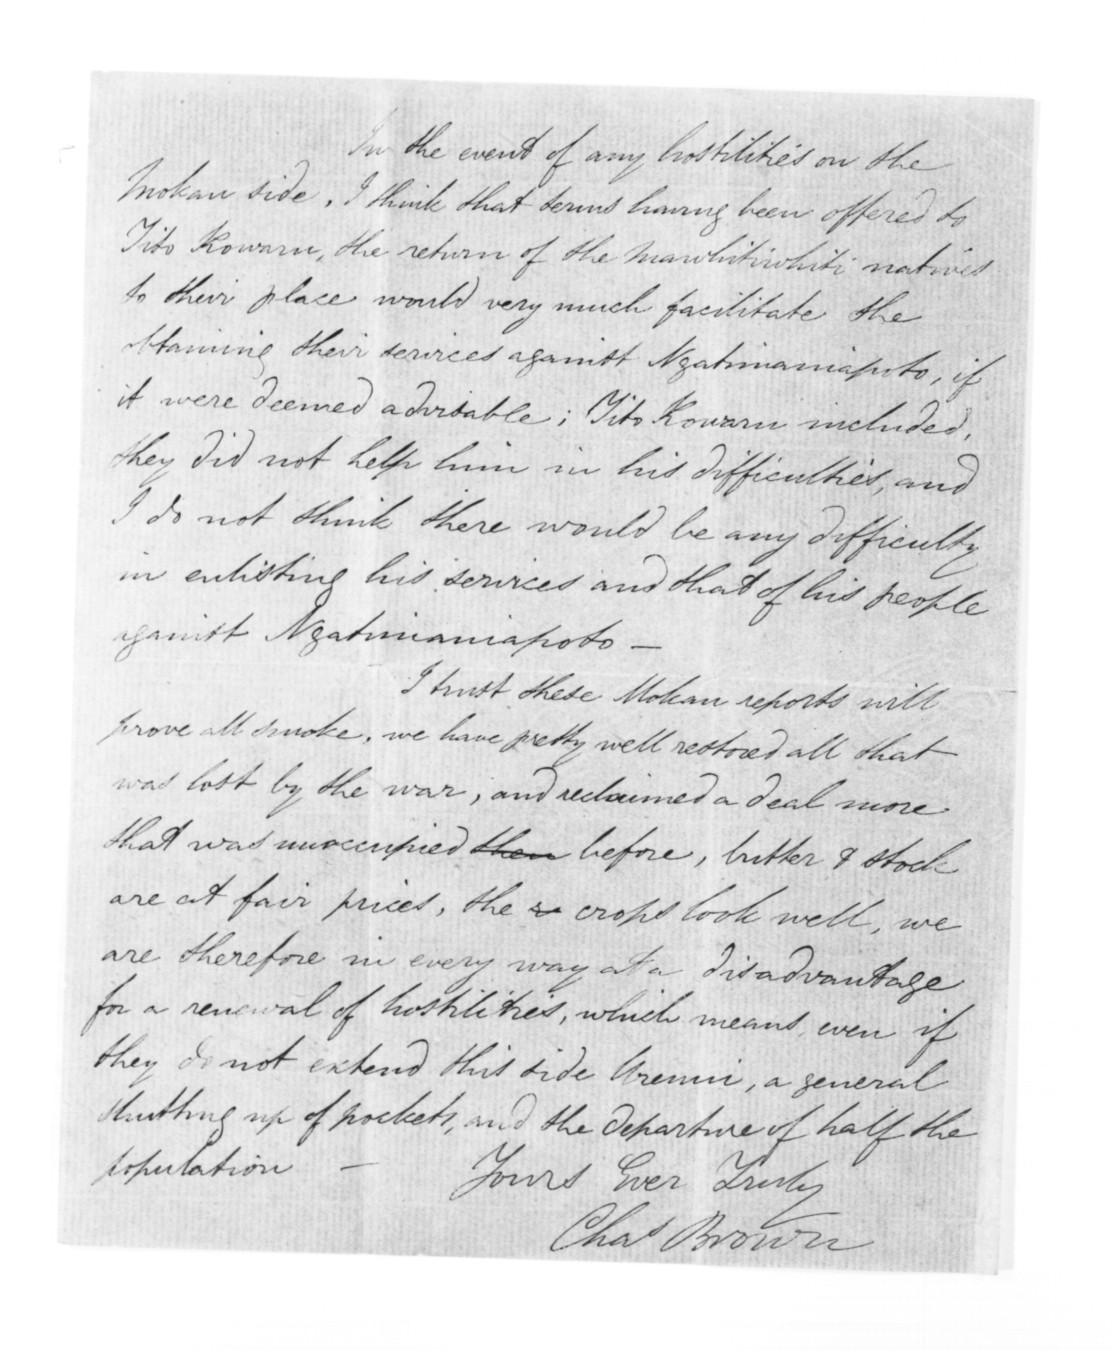 In the event of any hostilities on the
Mokau side, I think that terms having been offered to
Tito Kowaru, the return of the Mawhitiwhiti natives
to their place would very much facilitate the
obtaining their services against Ngatimaniapoto, if
it were deemed advisable; Tito Kowaru included,
they did not help him in his difficulties, and
I do not think there would be any difficulty
in enlisting his services and that of his people
against Ngatimaniapoto —
I trust these Mokau reports will
prove all smoke, we have pretty well restored all that
was lost by the war, and reclaimed a deal more
that was unoccupied then before, butter & stock
are at fair prices, the crops look well, we
are therefore in every way at a disadvantage
for a renewal of hostilities, which means, even if
they do not extend this side Urenui, a general
shutting up of pockets, and the departure of half the
population — Yours Ever Truly
Chas Brown